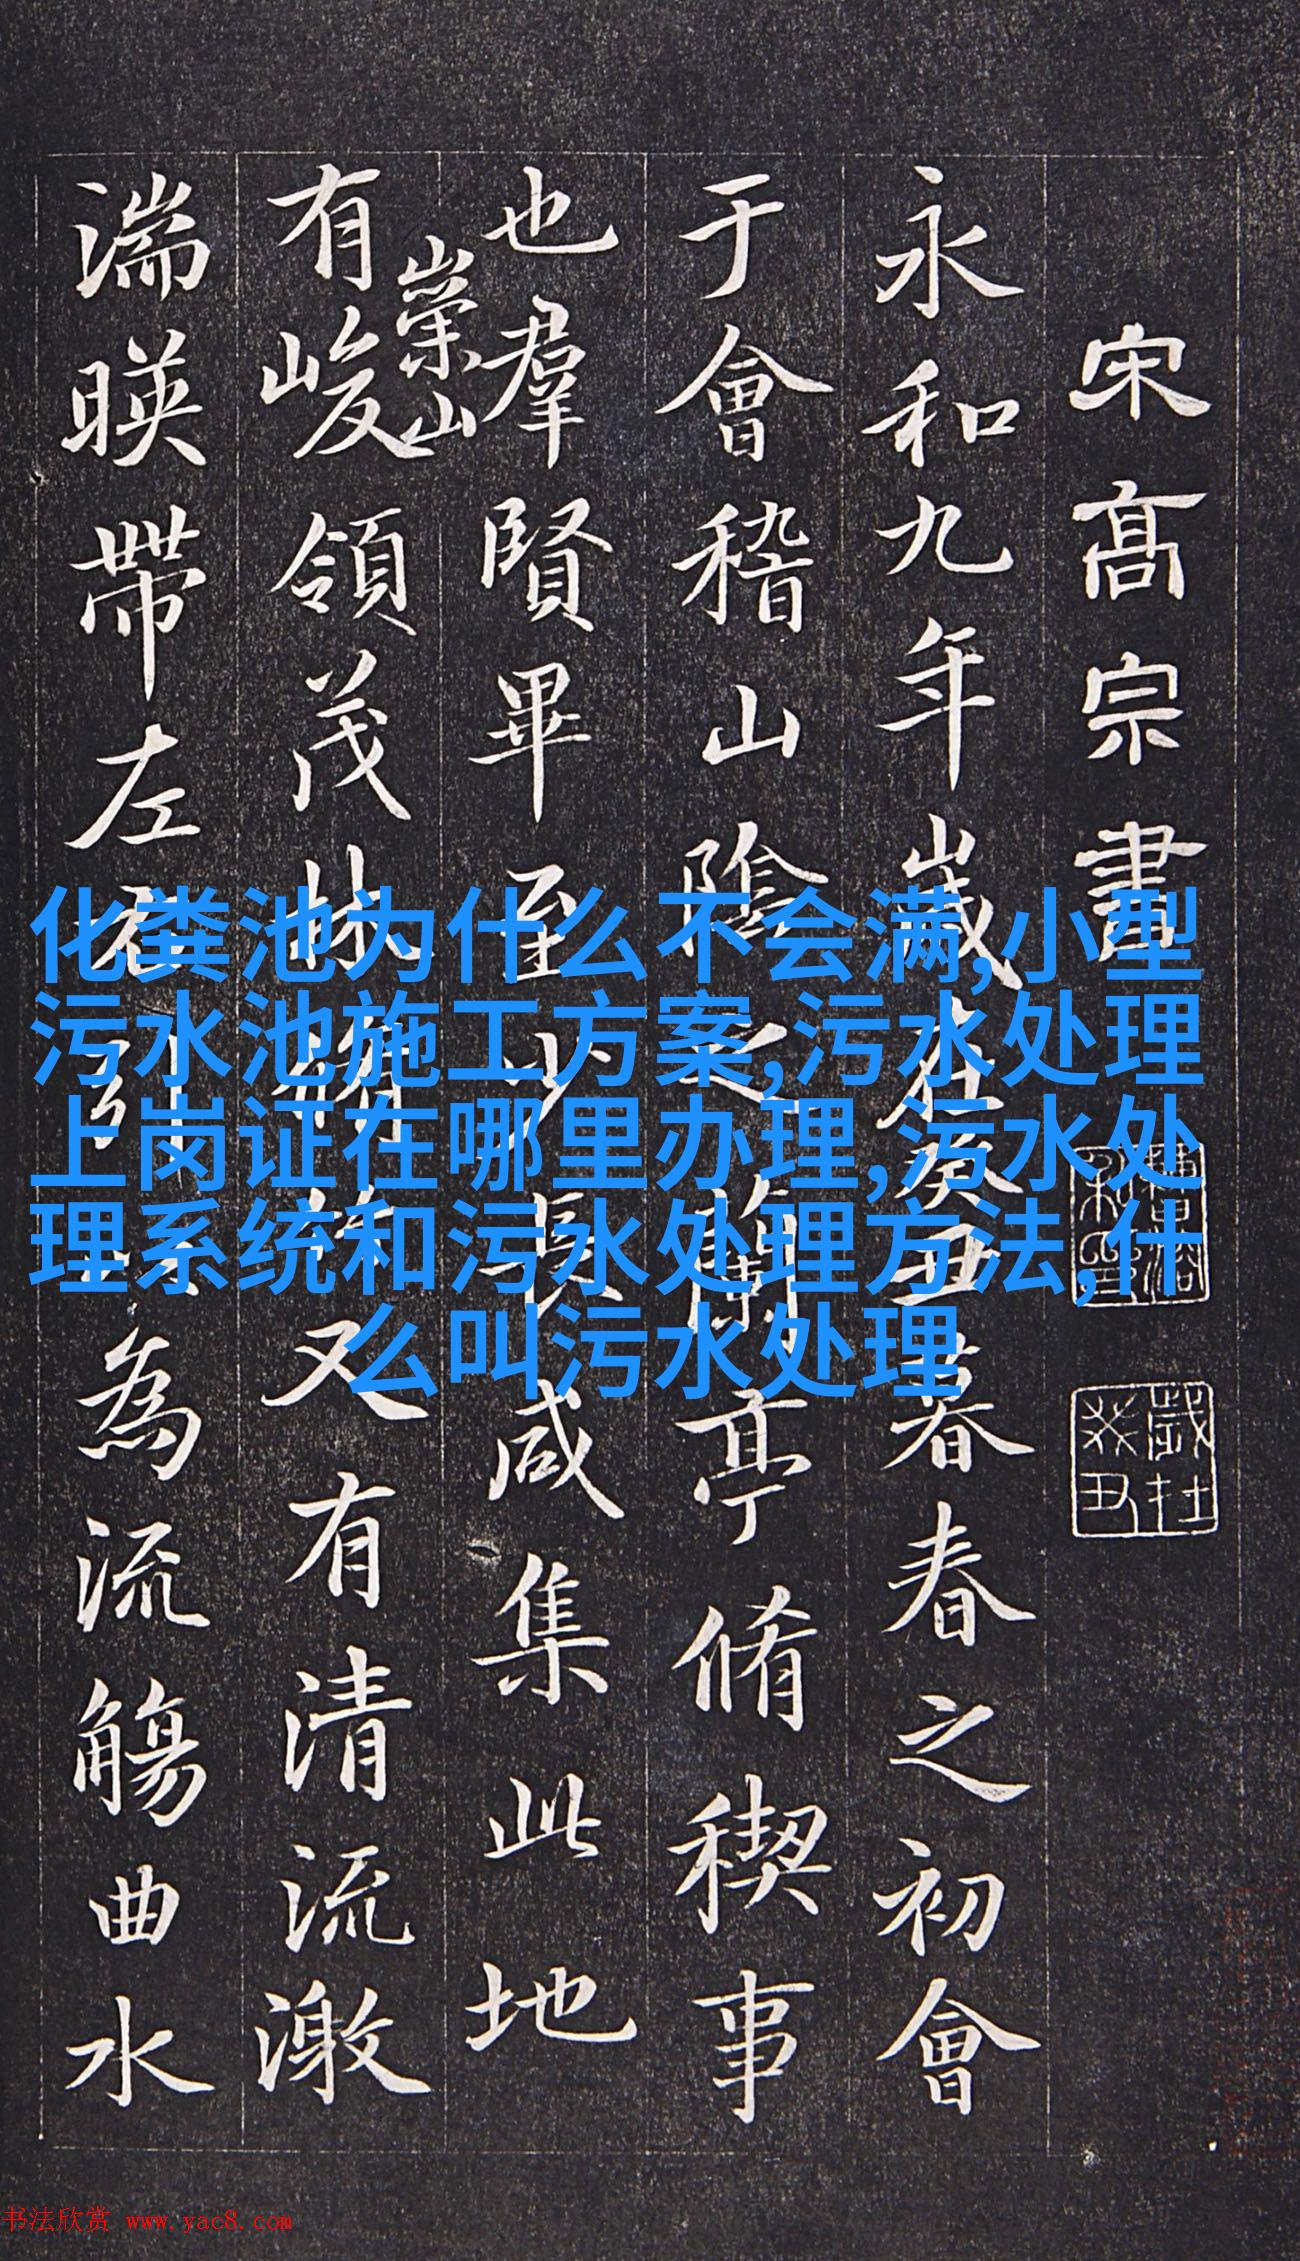 宋高宗書
永和九年歲在癸丑暮春之初會
于會稽山陰之蘭亭脩稧事
也羣賢畢至少長咸集此地
有崇山峻領茂林脩竹又有清流激
湍暎帶左右引以為流觴曲水
化粪池为什么不会满,小型
污水池施工方案,污水处理
上岗证在哪里办理,污水处
理系统和污水处理方法,什
么叫污水处理
书法欣赏 www.yac8.com